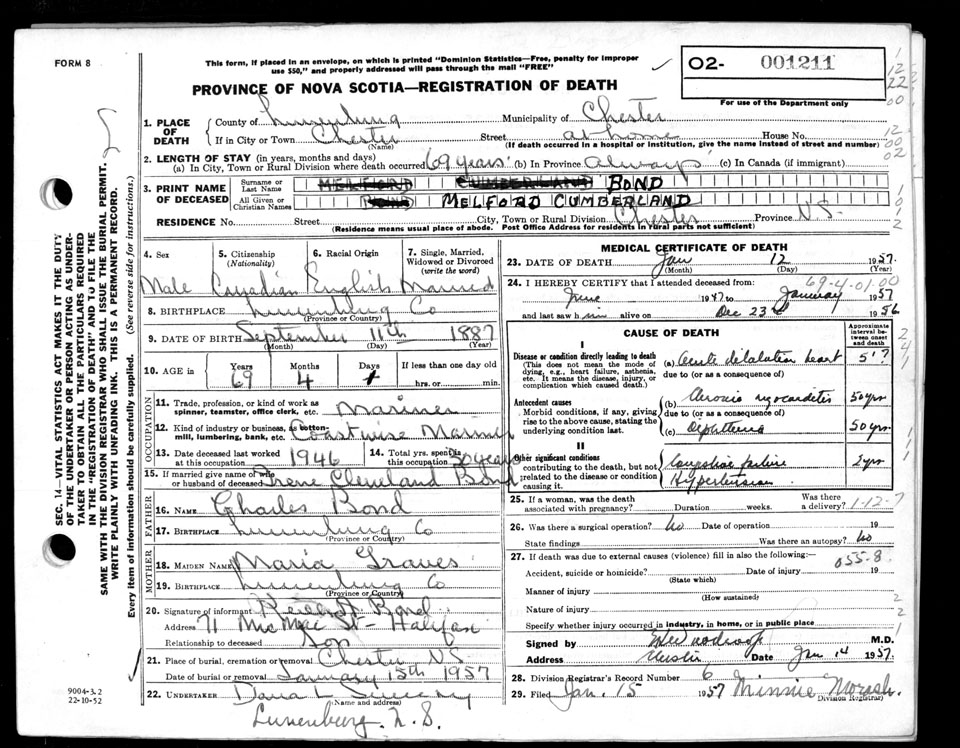 FORM 8
This form, if placed in an envelope, on which is printed "Dominion Statistics—Free, penalty for improper
use $50," and properly addressed will pass through the mail "FREE"
PROVINCE OF NOVA SCOTIA—REGISTRATION OF DEATH
O2- 001211
For use of the Department only
1. PLACE OF DEATH
County of Lunenburg Municipality of Chester
If in City or Town Chester Street at home House No.
(Name) (If death occurred in a hospital or institution, give the name instead of street and number)
2. LENGTH OF STAY (in years, months and days)
(a) In City, Town or Rural Division where death occurred 69 years (b) In Province always (c) In Canada (if immigrant)
3. PRINT NAME OF DECEASED
Surname or Last Name MELFORD CUMBERLAND BOND
All Given or Christian Names BOND MELFORD CUMBERLAND
RESIDENCE No. Street City, Town or Rural Division Chester Province N.S.
(Residence means usual place of abode. Post Office Address for residents in rural parts not sufficient)
4. Sex 5. Citizenship (Nationality) 6. Racial Origin 7. Single, Married, Widowed or Divorced (write the word)
Male Canadian English Married
8. BIRTHPLACE Lunenburg Co
(Province or Country)
9. DATE OF BIRTH September 11th 1887
(Month) (Day) (Year)
10. AGE in Years Months Days If less than one day old
69 4 1 hrs. or min.
OCCUPATION
11. Trade, profession, or kind of work as spinner, teamster, office clerk, etc. Mariner
12. Kind of industry or business, as cotton-mill, lumbering, bank, etc. Coastwise
13. Date deceased last worked at this occupation 1946
14. Total yrs. spent in this occupation 50 years
15. If married give name of wife or husband of deceased Irene Cleveland Bond
FATHER
16. NAME Charles Bond
17. BIRTHPLACE Lunenburg Co
(Province or Country)
MOTHER
18. MAIDEN NAME Maria Graves
19. BIRTHPLACE Lunenburg Co
(Province or Country)
20. Signature of informant Bond
Address 71 Mic Mac St - Halifax
Relationship to deceased Son
21. Place of burial, cremation or removal Chester N.S.
Date of burial or removal January 15th 1957
22. UNDERTAKER Dana L Sweeny
(Name and address)
Lunenburg, N.S.
9004-3.2
22-10-52
SEC. 14—VITAL STATISTICS ACT MAKES IT THE DUTY
OF THE UNDERTAKER OR PERSON ACTING AS UNDER-
TAKER TO OBTAIN ALL THE PARTICULARS REQUIRED
IN THE "REGISTRATION OF DEATH" AND TO FILE THE
SAME WITH THE DIVISION REGISTRAR WHO SHALL ISSUE THE BURIAL PERMIT.
WRITE PLAINLY WITH UNFADING INK. THIS IS A PERMANENT RECORD.
Every item of information should be carefully supplied. (See reverse side for instructions.)
MEDICAL CERTIFICATE OF DEATH
23. DATE OF DEATH Jan 12 1957.
(Month) (Day) (Year)
69-4-01.00
24. I HEREBY CERTIFY that I attended deceased from:
June 1947 to January 1957
and last saw him alive on Dec 23d 1956
CAUSE OF DEATH
Approximate interval between onset and death
I
Disease or condition directly leading to death
(This does not mean the mode of dying, e.g., heart failure, asthenia, etc. It means the disease, injury, or complication which caused death.)
(a) Acute dilatation heart 5'?
due to (or as a consequence of)
Antecedent causes
Morbid conditions, if any, giving rise to the above cause, stating the underlying condition last.
(b) Chronic myocarditis 50 yrs
due to (or as a consequence of)
(c) Diphtheria 50 yrs
II
Other significant conditions
contributing to the death, but not related to the disease or condition causing it.
Congestive failure 2 yrs
Hypertension
25. If a woman, was the death associated with pregnancy? Duration weeks. Was there a delivery?
1-12-7
26. Was there a surgical operation? No Date of operation 19
State findings Was there an autopsy? No
27. If death was due to external causes (violence) fill in also the following:—
055-8
Accident, suicide or homicide? Date of injury 19
(State which)
Manner of injury
(How sustained)
Nature of injury
Specify whether injury occurred in industry, in home, or in public place
Signed by M.D.
Address Chester Date Jan 14 1957.
28. Division Registrar's Record Number 6
29. Filed Jan. 15 1957 Minnie Morash.
Division Registrar